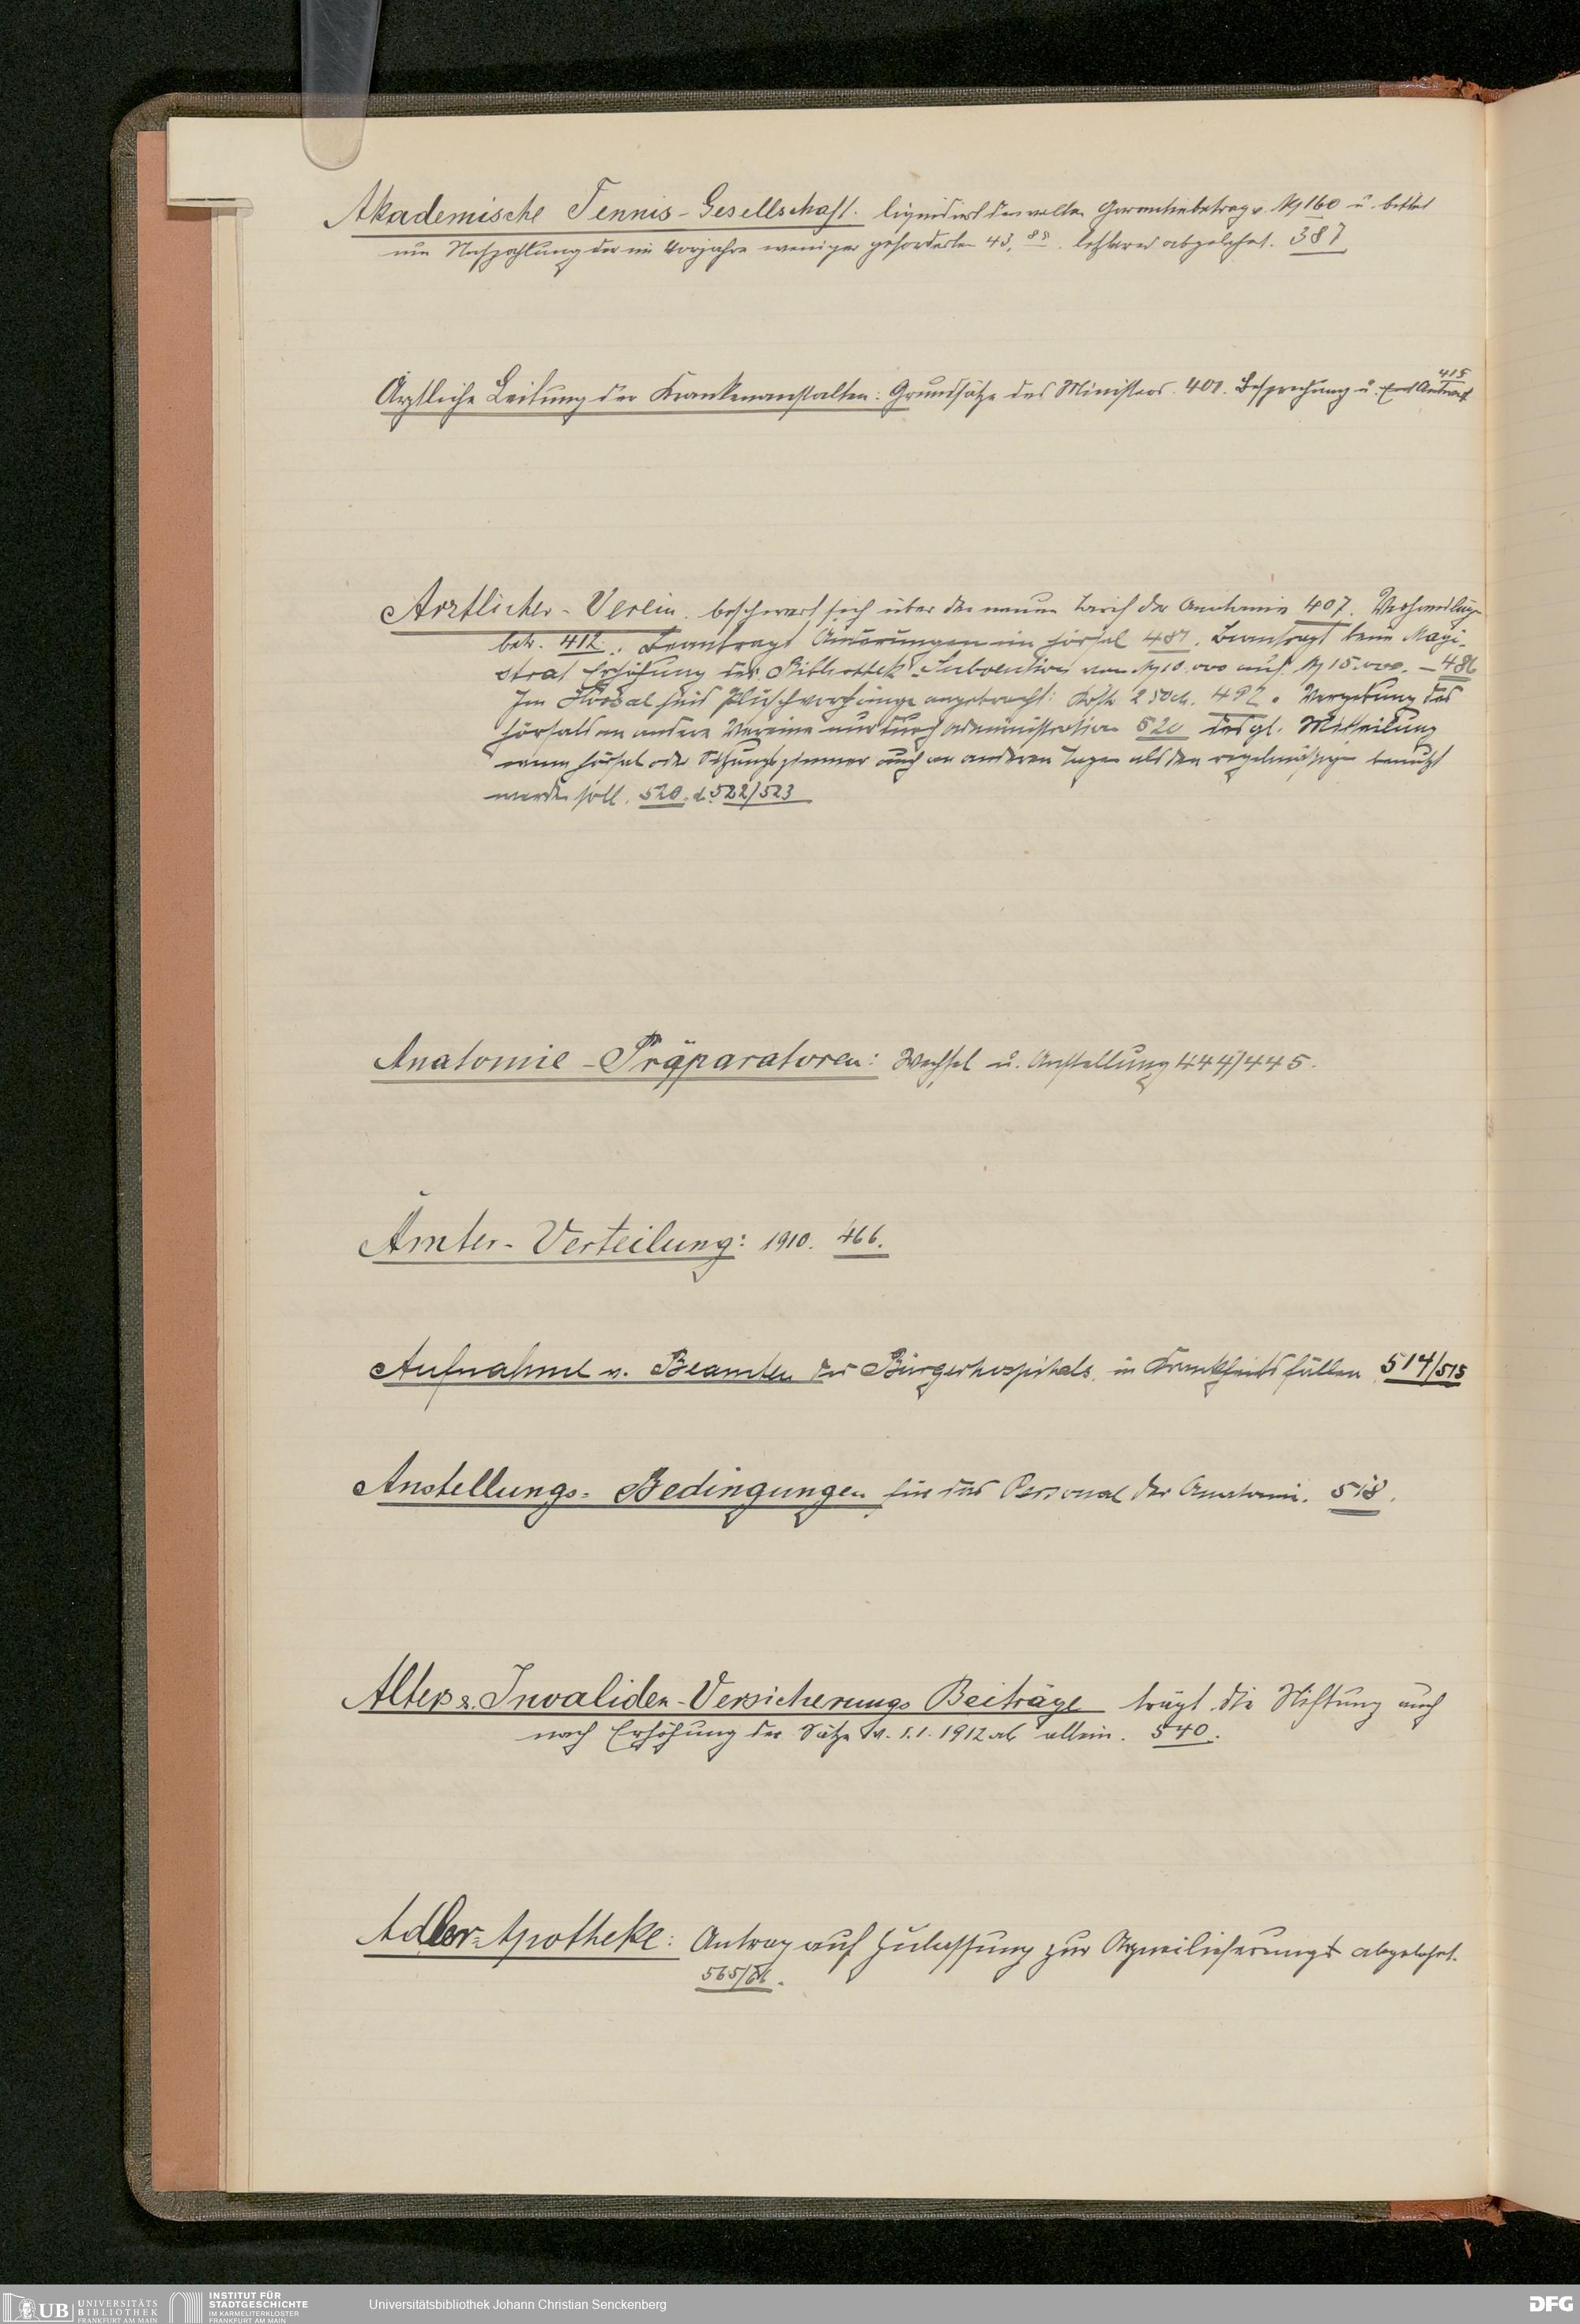 Akademische Tennis-Gesellschaft. liquidiert den vollen Garantiebetrag v. M 160 u. bittet
um Nachzahlung der im Vorjahre weniger geforderten 43, 88. letzteres abgelehnt. 387
415
Ärztliche Leitung der Krankenanstalten: Grundsätze des Ministers. 401. Besprechung u.
Ärztlicher-Verein. beschwert sich über den neuen Tarif der Anatomie 407.
betr. 412. Beantragt Änderungen im Hörsal 481. Beantragt beim Magi-
strat Erhöhung der Bibliothek-Subvention von M 10.000 auf M 15.000. – 486
Im Hörsal sind Plüschvorhänge angebracht: Kosten 250 M. 492. Vergebung des
Hörsals an andere Vereine nur durch Administration 520 desgl. Mitteilung
wenn Hörsal oder Sitzungszimmer auch an anderen Tagen als den regelmäßigen benutzt
werden soll. 520. u. 522/523
Anatomie-Präparatoren: Wechsel u. Anstellung 444/445.
Ämter-Verteilung: 1910. 466.
Aufnahme v. Beamten des Bürgerhospitals in Krankheitsfällen 514/515
Anstellungs-Bedingungen für das Personal der Anatomie. 518.
Alters & Invaliden-Versicherungs Beiträge trägt die Stiftung auch
nach Erhöhung der Sätze v. 1.1.1912 ab allein. 540.
Adler-Apotheke: Antrag auf Zulassung zur Arzneilieferung abgelehnt.
565/66.
UB UNIVERSITÄTS
BIBLIOTHEK
FRANKFURT AM MAIN
INSTITUT FÜR
STADTGESCHICHTE
IM KARMELITERKLOSTER
FRANKFURT AM MAIN
Universitätsbibliothek Johann Christian Senckenberg
DFG